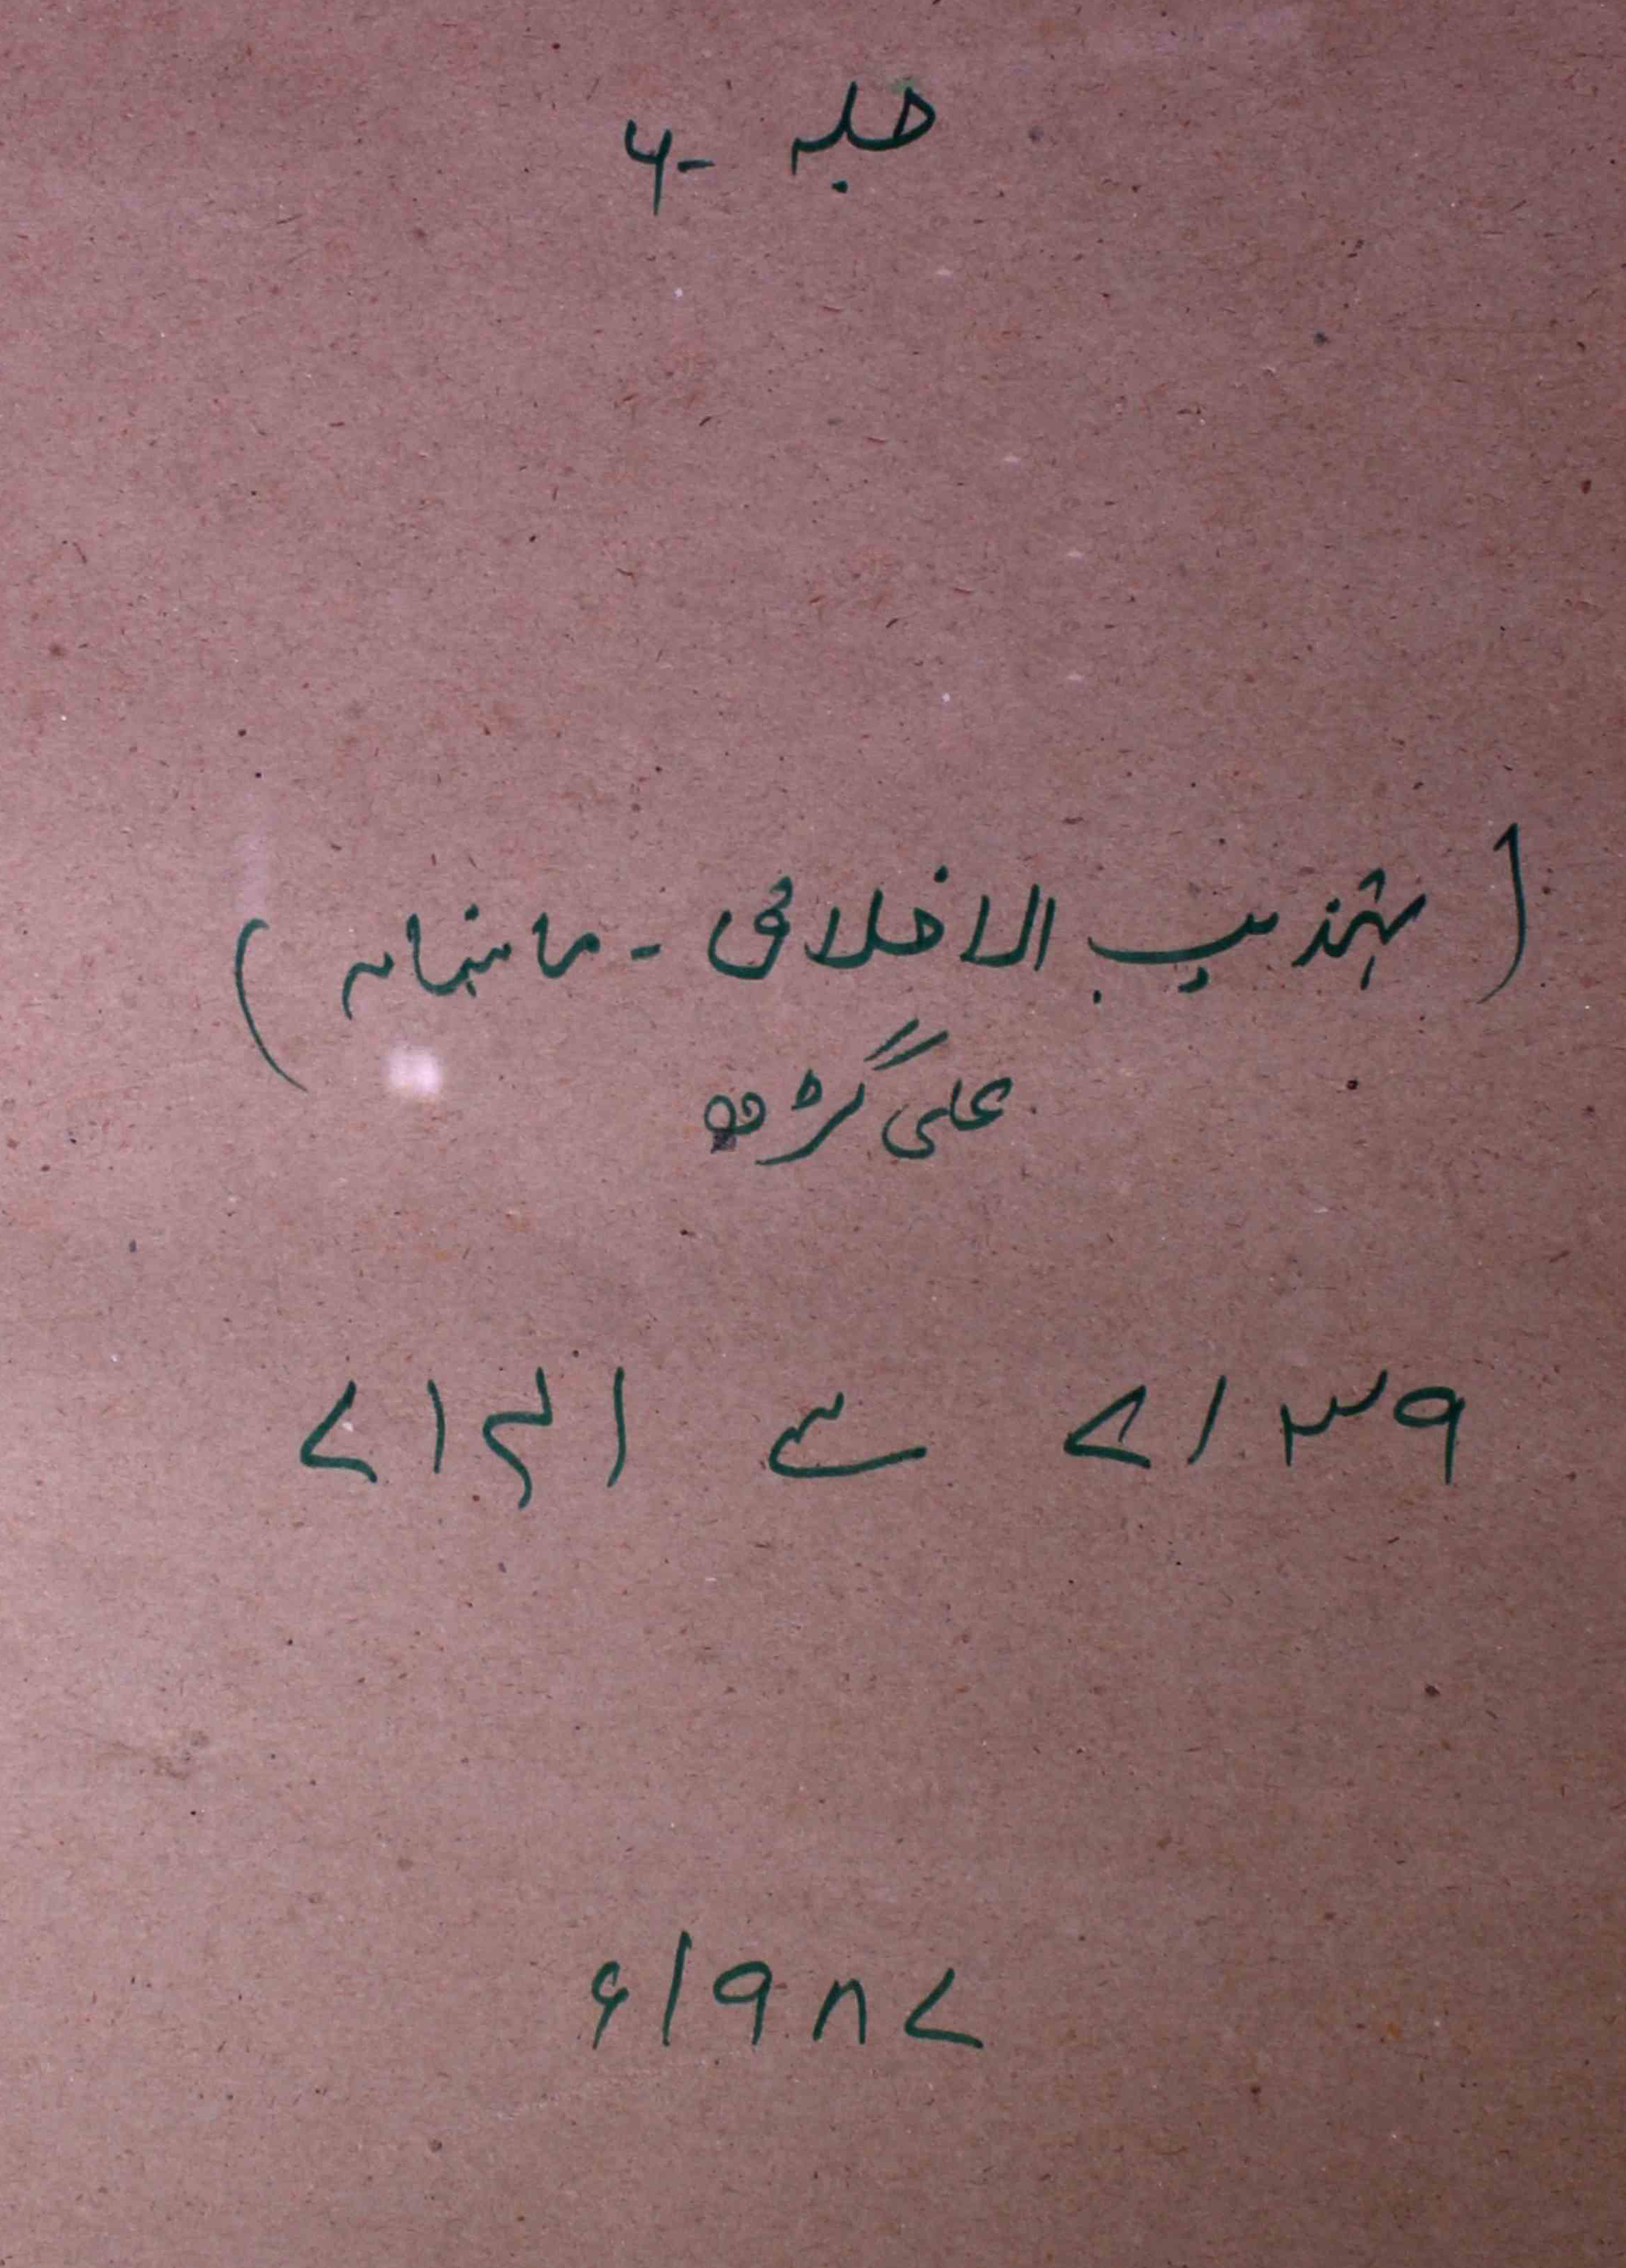 جلد -۶
(تہذیب الاخلاق - ماہنامہ)
علی گڑھ
۷۱۳۹ سے ۷۱۴۱
۱۹۸۷ء